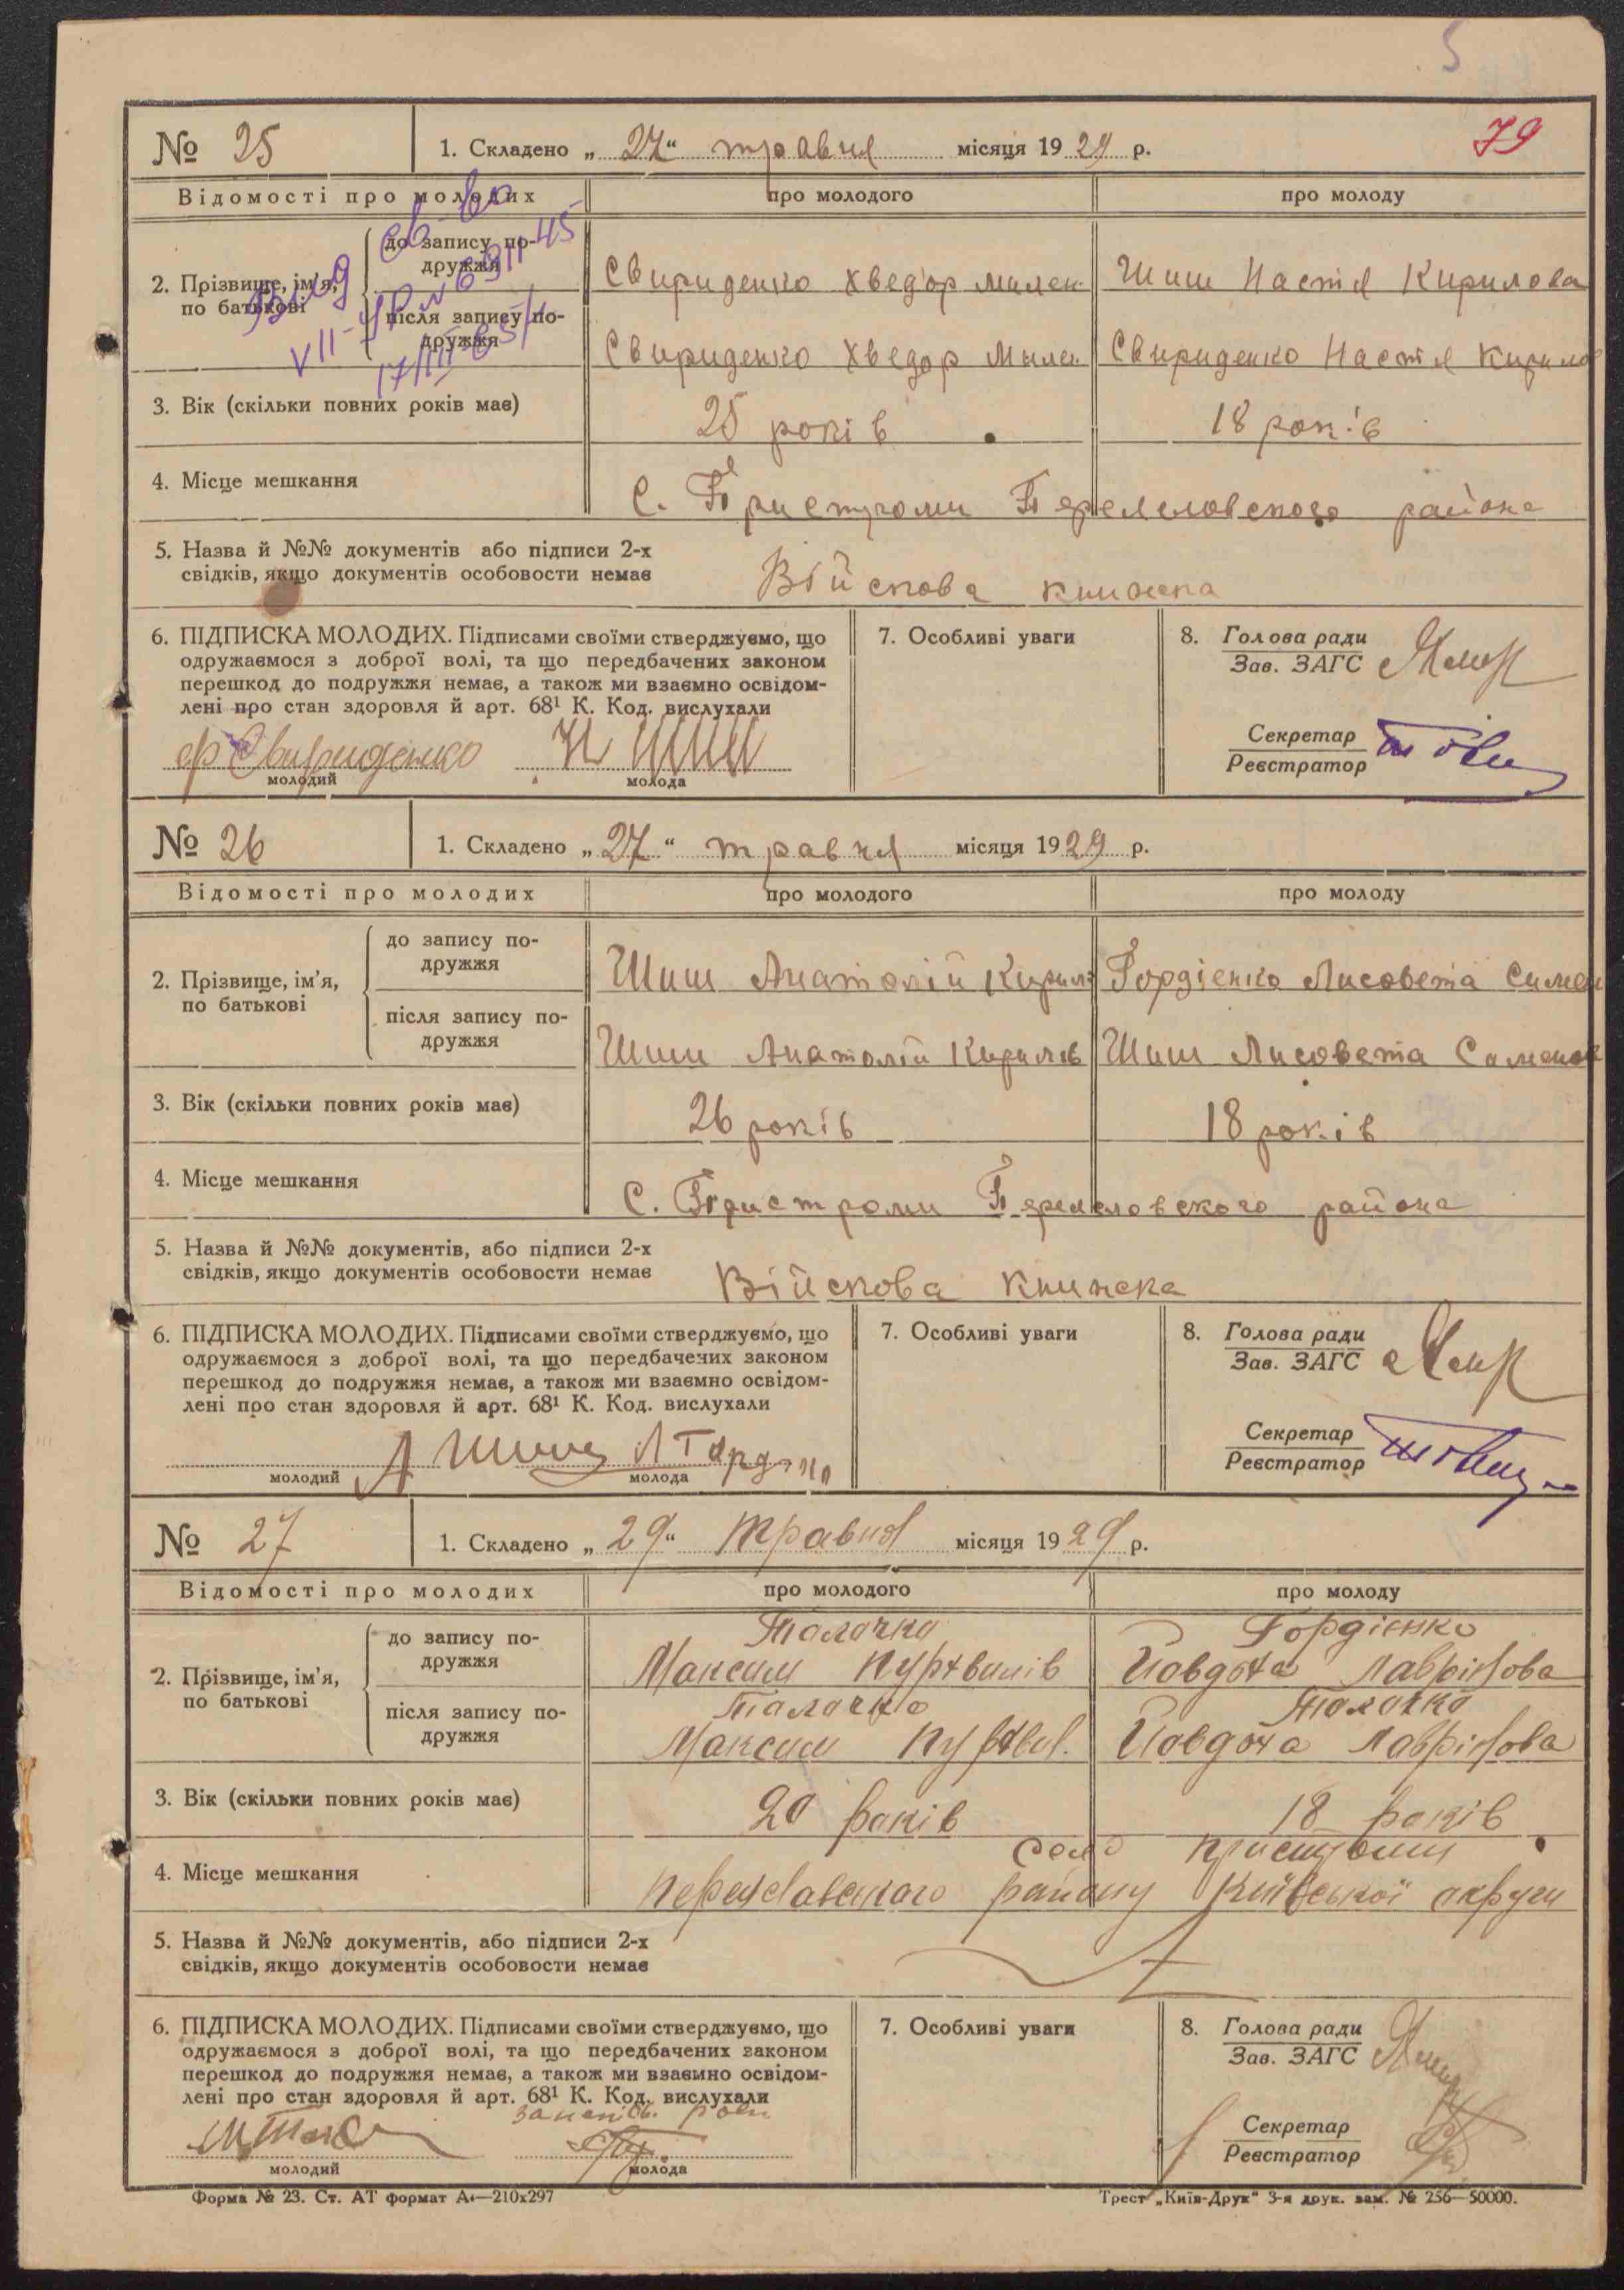 5
79
№ 25
1. Складено „ 27 “ травня місяця 19 29 р.
Відомості про молодих
про молодого
про молоду
2. Прізвище, ім’я, по батькові
до запису подружжя
Свириденко Хведор Милен.
Шиш Настя Кирилова
після запису подружжя
Свириденко Хведор Милен.
Свириденко Настя Кирилов
3. Вік (скільки повних років має)
25 років
18 років
4. Місце мешкання
С. Пристроми Переяславского района
5. Назва й №№ документів або підписи 2-х
свідків, якщо документів особовости немає
Війскова книжка
6. ПІДПИСКА МОЛОДИХ. Підписами своїми стверджуємо, що
одружаємося з доброї волі, та що передбачених законом
перешкод до подружжя немає, а також ми взаємно освідом-
лені про стан здоровля й арт. 68¹ К. Код. вислухали
ф Свириденко
Н Шиш
молодий
молода
7. Особливі уваги
8. Голова ради
Зав. ЗАГС
Секретар
Реєстратор
№ 26
1. Складено „ 27 “ травня місяця 19 29 р.
Відомості про молодих
про молодого
про молоду
2. Прізвище, ім’я, по батькові
до запису подружжя
Шиш Анатолій Кирил
Гордієнко Лисовета Симен
після запису подружжя
Шиш Анатолій Кирилів
Шиш Лисовета Семенов
3. Вік (скільки повних років має)
26 років
18 років
4. Місце мешкання
С. Пристроми Переясловского района
5. Назва й №№ документів, або підписи 2-х
свідків, якщо документів особовости немає
Війскова книжка
6. ПІДПИСКА МОЛОДИХ. Підписами своїми стверджуємо, що
одружаємося з доброї волі, та що передбачених законом
перешкод до подружжя немає, а також ми взаємно освідом-
лені про стан здоровля й арт. 68¹ К. Код. вислухали
А Шиш
молодий
молода
7. Особливі уваги
8. Голова ради
Зав. ЗАГС
Секретар
Реєстратор
№ 27
1. Складено „ 29 “ травня місяця 19 29 р.
Відомості про молодих
про молодого
про молоду
2. Прізвище, ім’я, по батькові
до запису подружжя
Талочка
Максим
Гордієнко
Йовдоха Лаврінова
після запису подружжя
Талочко
Максим
Талочка
Йовдоха Лаврінова
3. Вік (скільки повних років має)
20 років
18 років
4. Місце мешкання
село Пристроми
Переяславського району Київської округи
5. Назва й №№ документів, або підписи 2-х
свідків, якщо документів особовости немає
6. ПІДПИСКА МОЛОДИХ. Підписами своїми стверджуємо, що
одружаємося з доброї волі, та що передбачених законом
перешкод до подружжя немає, а також ми взаємно освідом-
лені про стан здоровля й арт. 68¹ К. Код. вислухали
молодий
молода
7. Особливі уваги
8. Голова ради
Зав. ЗАГС
Секретар
Реєстратор
Форма № 23. Ст. АТ формат А₄—210x297
Трест „Київ-Друк“ 3-я друк. зам. № 256—50000.